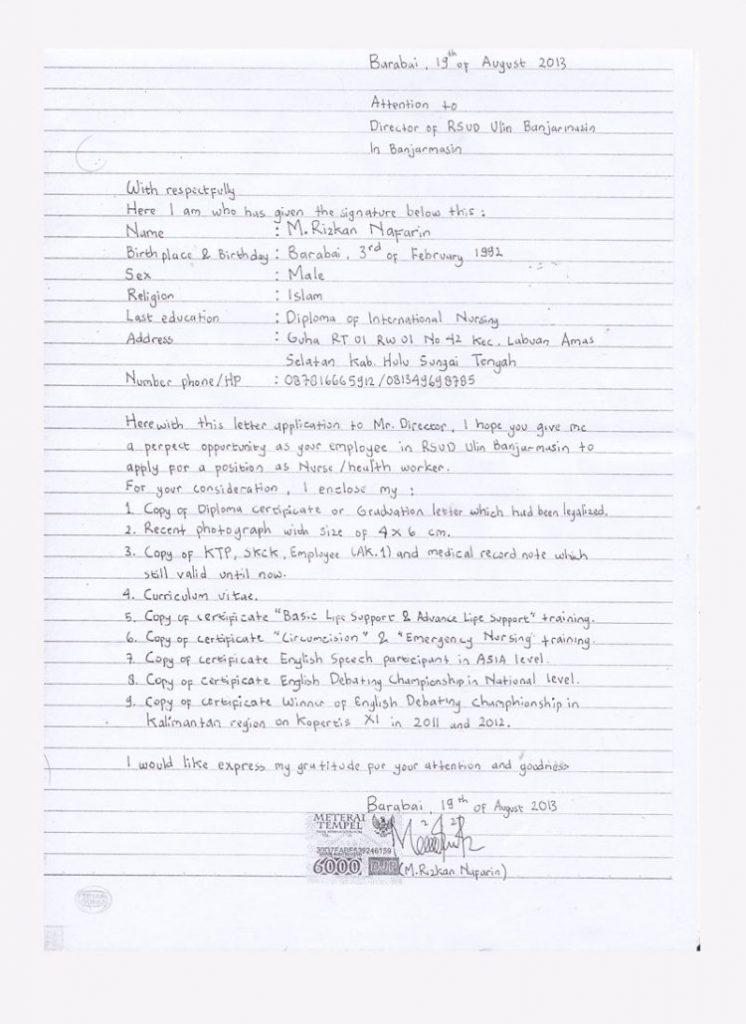 Barabai, 19th of August 2013
Attention to
Director of RSUD Ulin Banjarmasin
In Banjarmasin
With respectfully
Here I am who has given the signature below this :
Name : M. Rizkan Nafarin
Birth place & Birthday : Barabai, 3rd of February 1992
Sex : Male
Religion : Islam
Last education : Diploma of International Nursing
Address : Guha RT 01 RW 01 No 42 Kec. Labuan Amas
Selatan Kab. Hulu Sungai Tengah
Number phone/HP : 087816665912 /081349698785
Here with this letter application to Mr. Director, I hope you give me
a perpect opportunity as your employee in RSUD Ulin Banjarmasin to
apply for a position as Nurse /health worker.
For your consideration, I enclose my :
1. Copy of Diploma certificate or Graduation letter which had been legalized.
2. Recent photograph with size of 4 x 6 cm.
3. Copy of KTP, SKCK, Employee (AK.1) and medical record note which
still valid until now.
4. Curriculum vitae.
5. Copy of certificate "Basic Life Support & Advance Life Support" training.
6. Copy of certificate "Circumcision" & "Emergency Nursing" training.
7. Copy of certificate English Speech participant in ASIA level.
8. Copy of certificate English Debating Championship in National level.
9. Copy of certificate Winner of English Debating Champhionship in
Kalimantan region on Kopertis XI in 2011 and 2012.
I would like express my gratitude for your attention and goodness
Barabai, 19th of August 2013
METERAI
TEMPEL
6000 DJP
(M. Rizkan Nafarin)